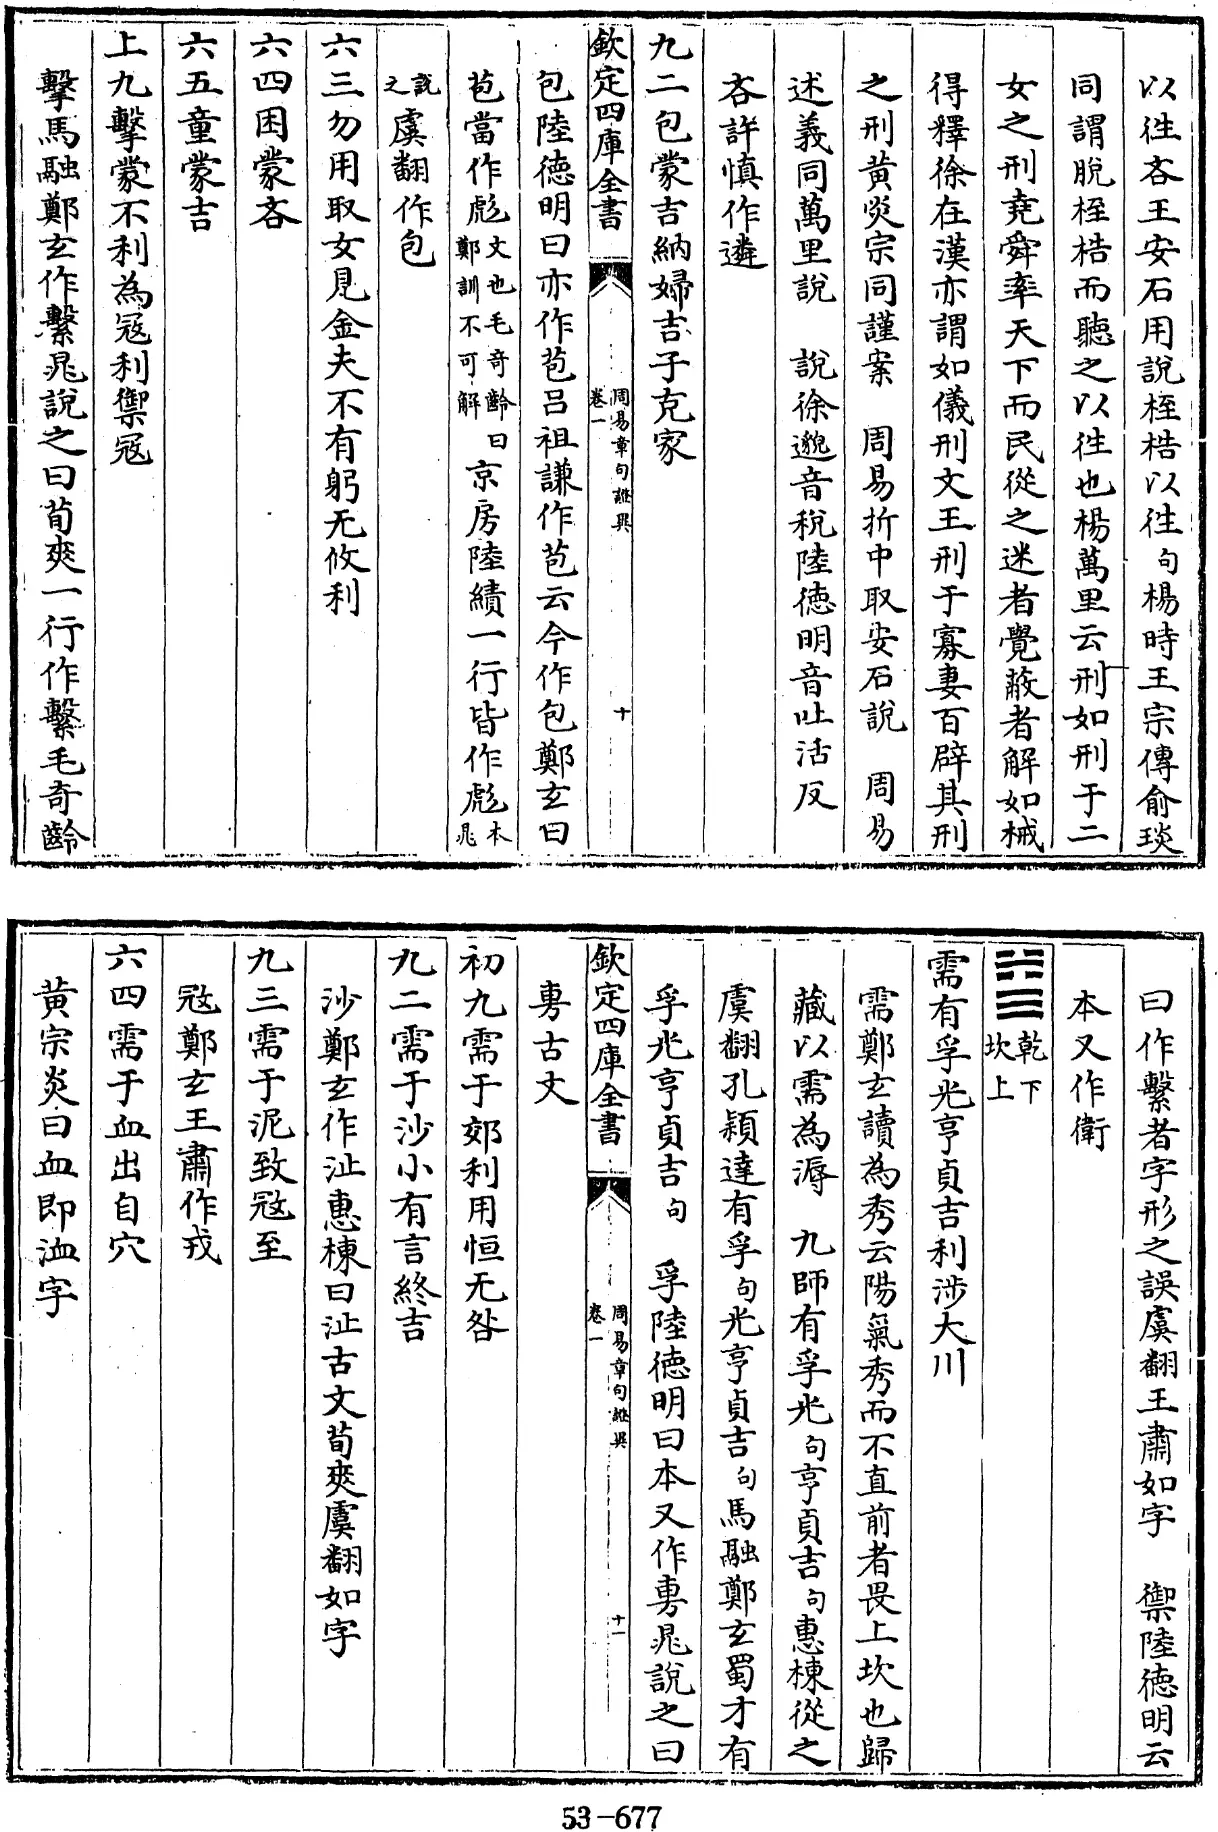 以徃吝王安石用說桎梏以徃句楊時王宗傳俞琰
同謂脫桎梏而聽之以徃也楊萬里云刑如刑于二
女之刑堯舜率天下而民從之迷者覺蔽者解如械
得釋徐在漢亦謂如儀刑文王刑于寡妻百辟其刑
之刑黃炎宗同謹案　周易折中取安石說　周易
述義同萬里說　說徐邈音稅陸德明音吐活反
吝許慎作遴
九二包蒙吉納婦吉子克家
欽定四庫全書
周易章句證異
卷一
十
包陸德明曰亦作苞呂祖謙作苞云今作包鄭玄曰
苞當作彪文也毛奇齡曰鄭訓不可解京房陸績一行皆作彪本晁
說之虞翻作包
六三勿用取女見金夫不有躬无攸利
六四困蒙吝
六五童蒙吉
上九擊蒙不利為冦利禦冦
擊馬融鄭玄作繫晁說之曰荀爽一行作繫毛奇齡
曰作繫者字形之誤虞翻王肅如字　禦陸德明云
本又作衛
䷄乾下
坎上
需有孚光亨貞吉利涉大川
需鄭玄讀為秀云陽氣秀而不直前者畏上坎也歸
藏以需為溽　九師有孚光句亨貞吉句惠棟從之
虞翻孔穎達有孚句光亨貞吉句馬融鄭玄蜀才有
孚光亨貞吉句　孚陸德明曰本又作旉晁說之曰
欽定四庫全書
周易章句證異
卷一
十一
旉古文
初九需于郊利用恒无咎
九二需于沙小有言終吉
沙鄭玄作沚惠棟曰沚古文荀爽虞翻如字
九三需于泥致冦至
冦鄭玄王肅作戎
六四需于血出自穴
黃宗炎曰血即洫字
53-677